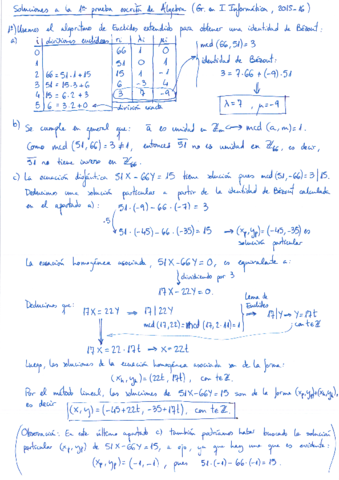 Soluciones a la 1ª prueba escrita de Álgebra (Gr. en I. Informática, 2015-16)
1º) Usamos el algoritmo de Euclides extendido para obtener una identidad de Bézout:
a)
i divisiones euclídeas ri λi μi
0 66 1 0
1 51 0 1
2 66=51·1+15 15 1 -1
3 51=15·3+6 6 -3 4
4 15=6·2+3 3 7 -9
5 6=3·2+0 división exacta
mcd(66,51)=3
identidad de Bézout:
3=7·66+(-9)·51
λ=7, μ=-9
b) Se cumple en general que: ā es unidad en ℤm ⟺ mcd(a,m)=1.
Como mcd(51,66)=3≠1, entonces 51 no es unidad en ℤ66, es decir,
51 no tiene inverso en ℤ66.
c) La ecuación diofántica 51X-66Y=15 tiene solución pues mcd(51,-66)=3|15.
Deducimos una solución particular a partir de la identidad de Bézout calculada
en el apartado a):
51·(-9)-66·(-7)=3
·5
51·(-45)-66·(-35)=15 → (xp,yp)=(-45,-35) es
solución particular
La ecuación homogénea asociada, 51X-66Y=0, es equivalente a:
dividiendo por 3
17X-22Y=0.
Deducimos que:
17X=22Y → 17|22Y → 17|Y → Y=17t
Lema de
Euclides
mcd(17,22)=mcd(17,2·11)=1
con t∈ℤ
17X=22·17t → X=22t
Luego, las soluciones de la ecuación homogénea asociada son de la forma:
(xh,yh)=(22t,17t), con t∈ℤ.
Por el método lineal, las soluciones de 51X-66Y=15 son de la forma (xp,yp)+(xh,yh),
es decir
(x,y)=(-45+22t,-35+17t), con t∈ℤ.
(Observación: En este último apartado c) también podríamos haber buscado la solución
particular (xp,yp) de 51X-66Y=15, a ojo, ya que hay una que es evidente:
(xp,yp)=(-1,-1), pues 51·(-1)-66·(-1)=15.)